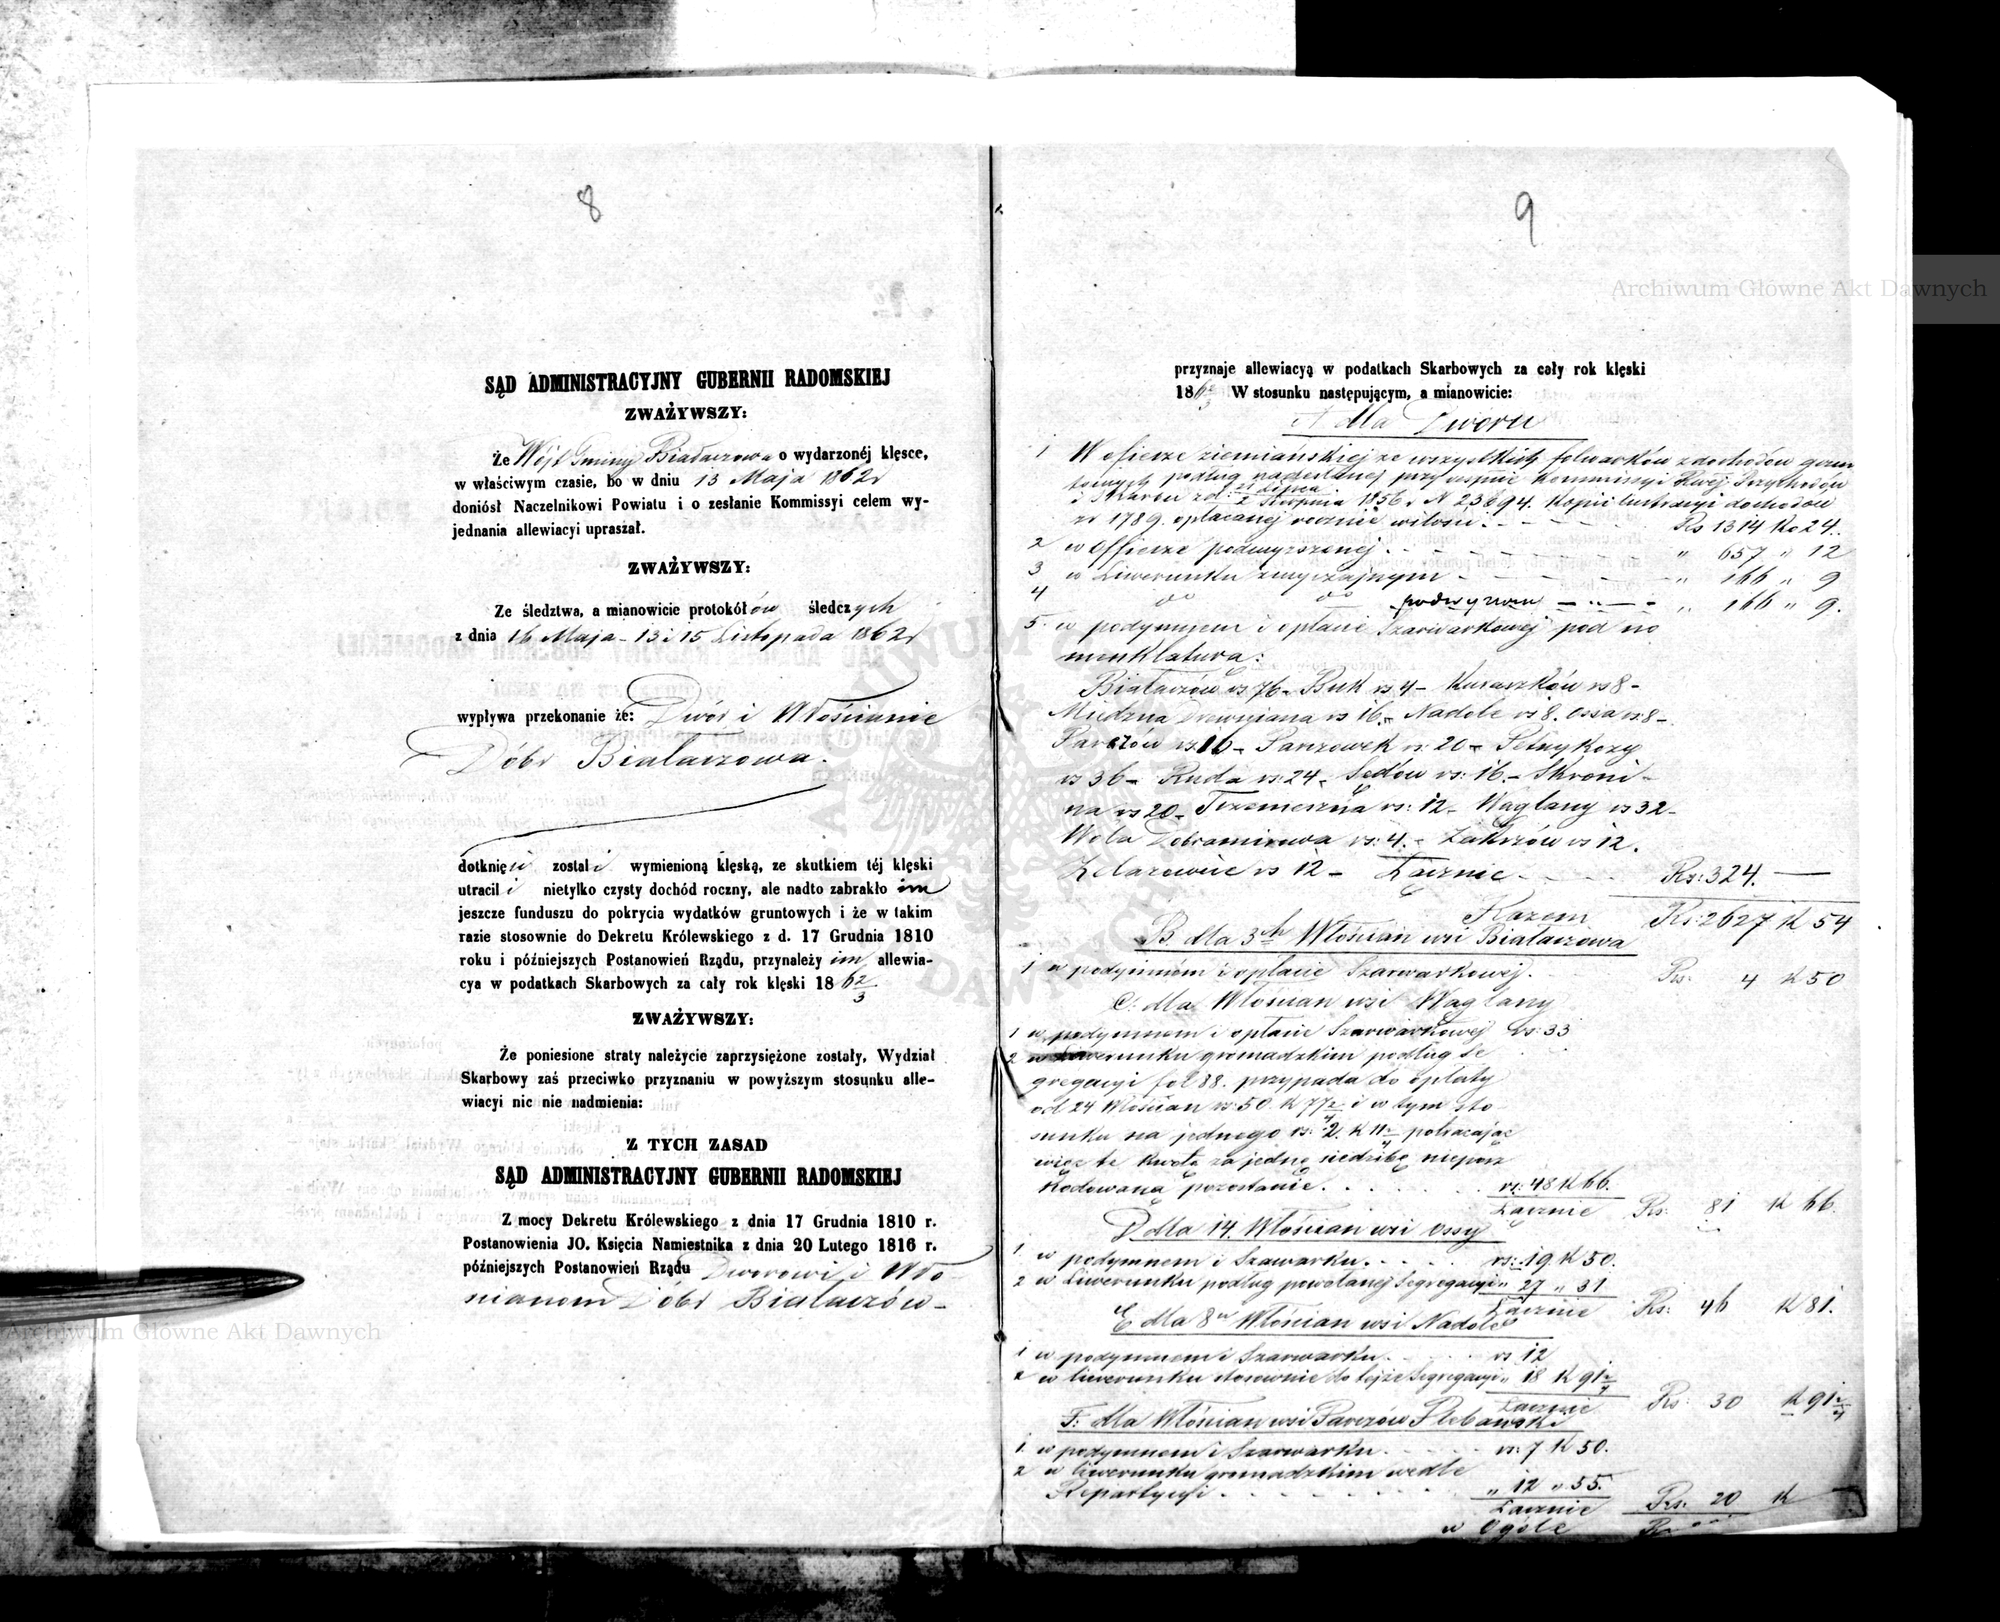 8
SĄD ADMINISTRACYJNY GUBERNII RADOMSKIEJ
ZWAŻYWSZY:
Że Wójt Gminy Białaczowa o wydarzonéj klęsce,
w właściwym czasie, bo w dniu 13 Maja 1862 r
doniósł Naczelnikowi Powiatu i o zesłanie Kommissyi celem wy-
jednania allewiacyi upraszał.
ZWAŻYWSZY:
Ze śledztwa, a mianowicie protokółów śledczych
z dnia 16 Maja - 13 i 15 Listopada 1862 r
wypływa przekonanie że: Dwór i Włościanie
Dóbr Białaczowa.
dotknięci zostali wymienioną klęską, ze skutkiem téj klęski
utracili nietylko czysty dochód roczny, ale nadto zabrakło im
jeszcze funduszu do pokrycia wydatków gruntowych i że w takim
razie stosownie do Dekretu Królewskiego z d. 17 Grudnia 1810
roku i późniejszych Postanowień Rządu, przynależy im allewia-
cya w podatkach Skarbowych za cały rok klęski 1862/3
ZWAŻYWSZY:
Że poniesione straty należycie zaprzysiężone zostały, Wydział
Skarbowy zaś przeciwko przyznaniu w powyższym stosunku alle-
wiacyi nic nie nadmienia:
Z TYCH ZASAD
SĄD ADMINISTRACYJNY GUBERNII RADOMSKIEJ
Z mocy Dekretu Królewskiego z dnia 17 Grudnia 1810 r.
Postanowienia JO. Księcia Namiestnika z dnia 20 Lutego 1816 r.
późniejszych Postanowień Rządu Dworowi i Wło-
scianom Dóbr Białaczów-
9
przyznaje allewiacyą w podatkach Skarbowych za cały rok klęski
1862/3 W stosunku następującym, a mianowicie:
A dla Dworu
1 W ofierze ziemiańskiej ze wszystkich folwarków z dochodów grun
towych podług nadesłanej przy reskr Kommissyi Rwej Przychodów
i Skarbu z d. 21 Lipca/2 Sierpnia 1856 r N 23894. Kopii lustracyi dochodów
zr 1789. opłacanej rocznie w ilości. Rs 1314 Ko 24.
2 w Offierze podwyzszonej. " 657 " 12
3 w Liwerunku zwyczajnym " 166 " 9
4 do do podwyższon " 166 " 9.
5. w podymnem i opłacie Szarwarkowej pod no
menklaturą:
Białaczów rs 76 - Buk rs 4 - Kuraszków rs 8 -
Miedzna Drewniana rs 16. - Nadole rs 8. Ossa rs 8 -
Parczów rs 16 - Parczowek rs: 20 - Petrykozy
rs 36 - Ruda rs: 24 - Sędów rs: 16. - Skroni-
na rs 20 - Trzemeszna rs: 12 - Waglany rs 32 -
Wola Dobromirowa rs: 4. - Zakrzów rs 12.
Żelazowice rs 12 - Łącznie Rs: 324. —
Razem Rs: 2627 K 54
B. dla 3ch Włościan wsi Białaczowa
1 w podymnem i opłacie Szarwarkowej. Rs. 4 K 50
C: dla Włościan wsi Waglany
1 w podymnem i opłacie Szarwarkowej rs: 33
2 w Liwerunku gromadzkim podług Se
gregacyi fol 88. przypada do opłaty
od 24 Włościan rs: 50. K 77 2/4 i w tym sto-
sunku na jednego rs: 2. K 11 potrącając
więc tę kwotę za jedną siedzibę nieposz
kodowaną pozostanie. rs: 48 K 66.
Łącznie Rs: 81 K 66.
D dla 14. Włościan wsi Ossy
1. w podymnem i Szarwarku. rs: 19. K 50.
2 w Liwerunku podług powołanej Segregacyi " 27 " 31
Łącznie Rs: 46 K 81.
E dla 8u Włościan wsi Nadole
1 w podymnem i Szarwarku. rs 12
2 w Liwerunku stosownie do tejże Segregacyi " 18 K 91 2/4
Łącznie Rs: 30 K 91 2/4
F: dla Włościan wsi Parczów Plebański
1. w podymnem i Szarwarku. rs: 7 K 50.
2 w Liwerunku gromadzkim wedle
Repartycyi. " 12 " 55.
Łącznie Rs. 20 K
w Ogóle Rs
Archiwum Główne Akt Dawnych
Archiwum Główne Akt Dawnych